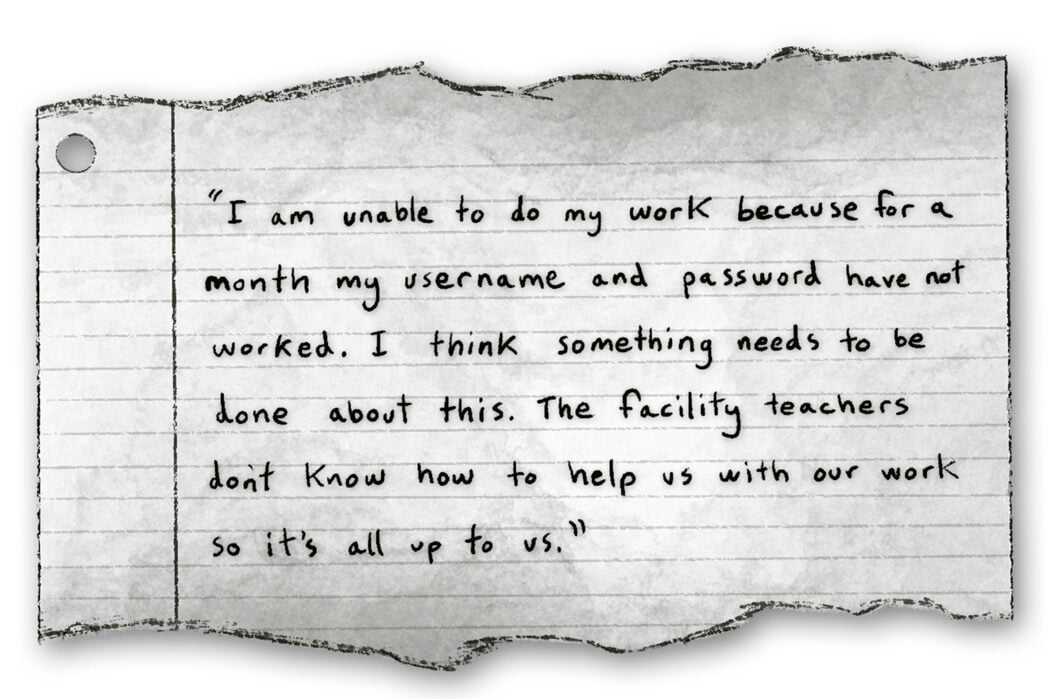 "I am unable to do my work because for a
month my username and password have not
worked. I think something needs to be
done about this. The facility teachers
don't know how to help us with our work
so it's all up to us."